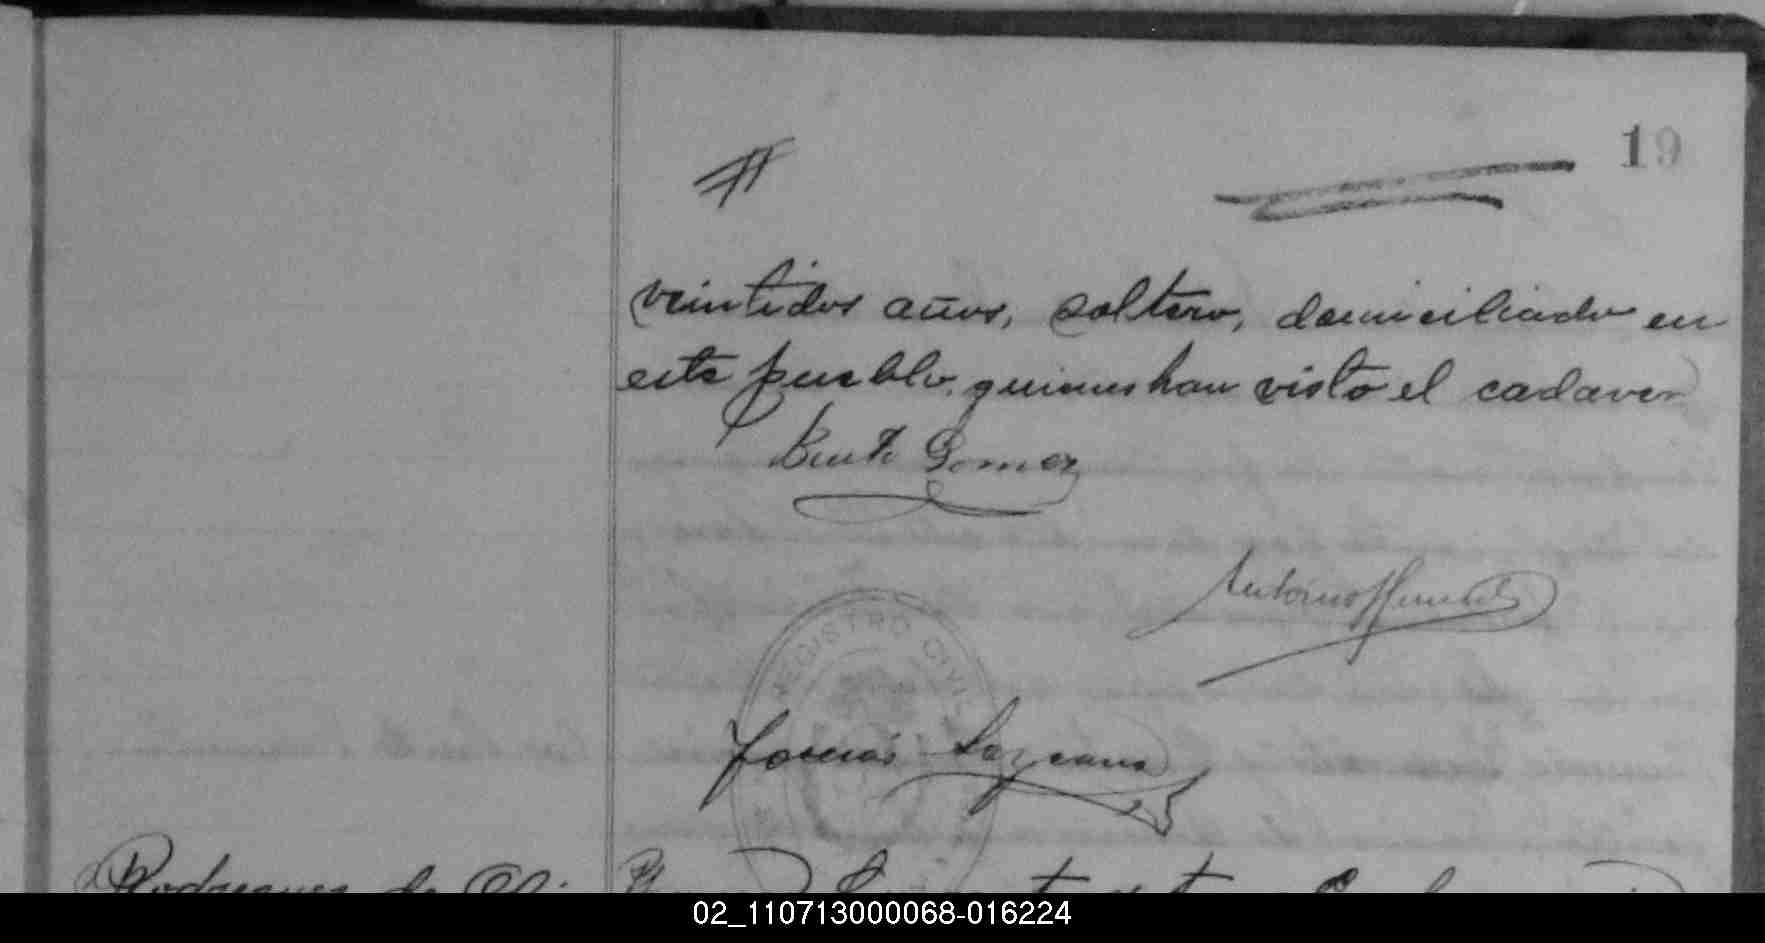 19
veintidos años, soltero, domiciliado en
este pueblo, quienes han visto el cadaver
Benito Gomez
Antonio
REGISTRO CIVIL
Tomás Lazcano
Rodriguez de
02_110713000068-016224